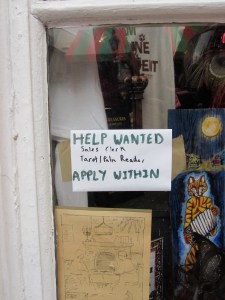 HELP WANTED
Sales Clerk
Tarot/Palm Reader
APPLY WITHIN